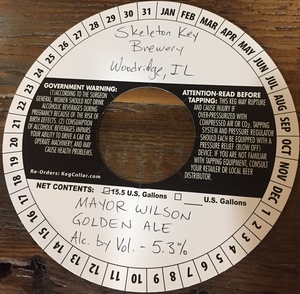 Skeleton Key
Brewery
Woodridge, IL
GOVERNMENT WARNING:
(1) ACCORDING TO THE SURGEON
GENERAL, WOMEN SHOULD NOT DRINK
ALCOHOLIC BEVERAGES DURING
PREGNANCY BECAUSE OF THE RISK OF
BIRTH DEFECTS. (2) CONSUMPTION
OF ALCOHOLIC BEVERAGES IMPAIRS
YOUR ABILITY TO DRIVE A CAR OR
OPERATE MACHINERY, AND MAY
CAUSE HEALTH PROBLEMS.
Re-Orders: KegCollar.com
ATTENTION-READ BEFORE
TAPPING: THIS KEG MAY RUPTURE
AND CAUSE INJURY IF
OVER-PRESSURIZED WITH
COMPRESSED AIR OR CO2. TAPPING
SYSTEM AND PRESSURE REGULATOR
SHOULD EACH BE EQUIPPED WITH A
PRESSURE RELIEF (BLOW OFF)
DEVICE. IF YOU ARE NOT FAMILIAR
WITH TAPPING EQUIPMENT, CONSULT
YOUR RETAILER OR LOCAL BEER
DISTRIBUTOR.
NET CONTENTS: 15.5 U.S. Gallons U.S. Gallons
MAYOR WILSON
GOLDEN ALE
Alc. by Vol. - 5.3%
JAN FEB MAR APR MAY JUN JUL AUG SEP OCT NOV DEC
1 2 3 4 5 6 7 8 9 10 11 12 13 14 15 16 17 18 19 20 21 22 23 24 25 26 27 28 29 30 31